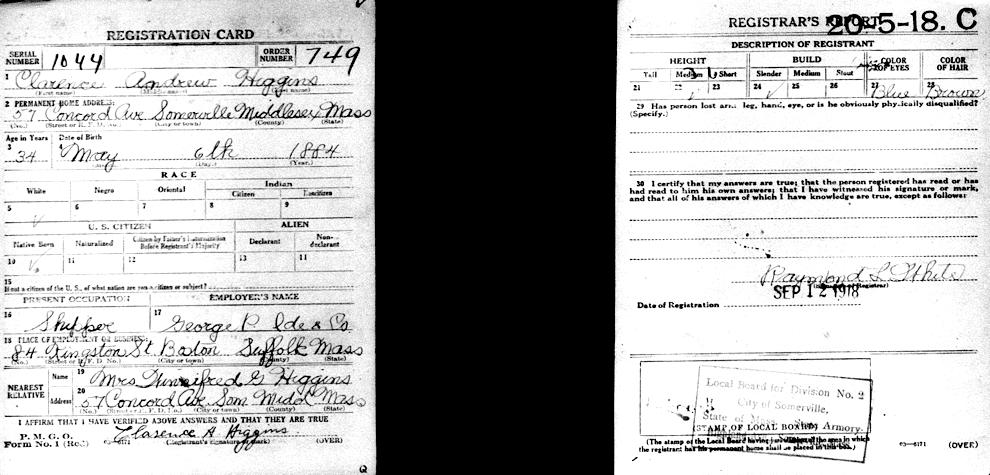 REGISTRATION CARD
SERIAL NUMBER 1044 ORDER NUMBER 749
1 Clarence Andrew Higgins
(First name) (Middle name) (Last name)
2 PERMANENT HOME ADDRESS:
57 Concord Ave Somerville Middlesex Mass
(No.) (Street or R. F. D. No.) (City or town) (County) (State)
Age in Years Date of Birth
3 34 4 May 6th 1884
(Day.) (Year.)
RACE
White Negro Oriental Indian
Citizen Noncitizen
5 6 7 8 9
U. S. CITIZEN ALIEN
Native Born Naturalized Citizen by Father's Naturalization Before Registrant's Majority Declarant Non-declarant
10 11 12 13 14
15
If not a citizen of the U. S., of what nation are you a citizen or subject?
PRESENT OCCUPATION EMPLOYER'S NAME
16 Shipper 17 George P. Ide & Co
18 PLACE OF EMPLOYMENT OR BUSINESS:
84 Kingston St. Boston Suffolk Mass
(No.) (Street or R. F. D. No.) (City or town) (County) (State)
NEAREST RELATIVE Name 19 Mrs Winnifred G Higgins
Address 20 57 Concord Ave Som Midd Mass
(No.) (Street or R. F. D. No.) (City or town) (County) (State)
I AFFIRM THAT I HAVE VERIFIED ABOVE ANSWERS AND THAT THEY ARE TRUE
P. M. G. O.
Form No. 1 (Red) Clarence A. Higgins
(Registrant's signature or mark) (OVER)
REGISTRAR'S REPORT 20-5-18. C
DESCRIPTION OF REGISTRANT
HEIGHT BUILD COLOR OF EYES COLOR OF HAIR
Tall Medium Short Slender Medium Stout
21 22 23 24 25 26 27 Blue 28 Brown
29 Has person lost arm, leg, hand, eye, or is he obviously physically disqualified?
(Specify.)
30 I certify that my answers are true; that the person registered has read or has
had read to him his own answers; that I have witnessed his signature or mark,
and that all of his answers of which I have knowledge are true, except as follows:
Raymond L White
(Signature of Registrar)
Date of Registration SEP 12 1918
Local Board for Division No. 2
City of Somerville,
State of Mass. Armory.
(STAMP OF LOCAL BOARD)
(The stamp of the Local Board having jurisdiction of the area in which
the registrant has his permanent home shall be placed in this box.)
03-6171 (OVER)